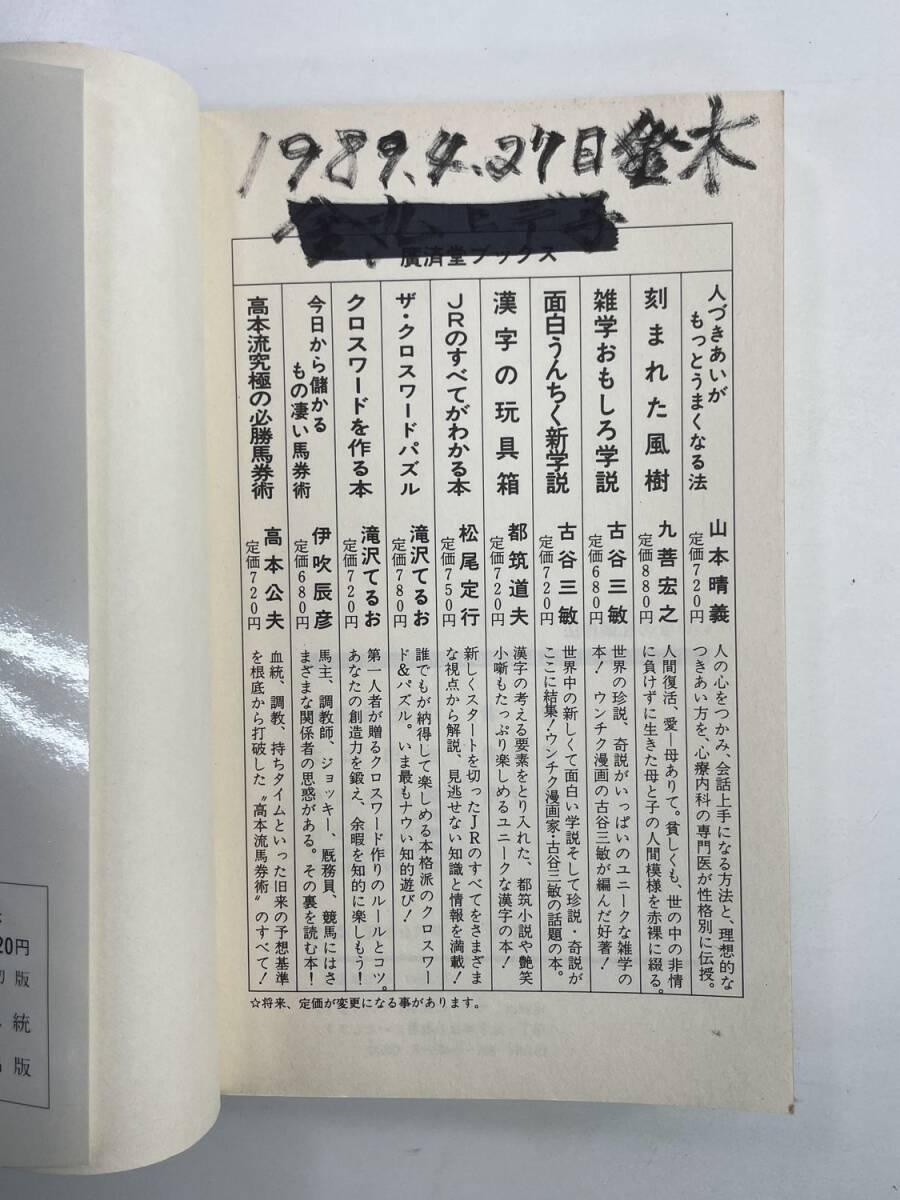 1989.4.27日
廣済堂ブックス
人づきあいが
もっとうまくなる法
山本晴義
定価720円
人の心をつかみ、会話上手になる方法と、理想的な
つきあい方を、心療内科の専門医が性格別に伝授。
刻まれた風樹
九善宏之
定価880円
人間復活、愛―母ありて。貧しくも、世の中の非情
に負けずに生きた母と子の人間模様を赤裸に綴る。
雑学おもしろ学説
古谷三敏
定価680円
世界の珍説、奇説がいっぱいのユニークな雑学の
本! ウンチク漫画の古谷三敏が編んだ好著!
面白うんちく新学説
古谷三敏
定価720円
世界中の新しくて面白い学説そして珍説・奇説が
ここに結集!ウンチク漫画家・古谷三敏の話題の本。
漢字の玩具箱
都筑道夫
定価720円
漢字の考える要素をとり入れた、都筑小説や艶笑
小噺もたっぷり楽しめるユニークな漢字の本!
JRのすべてがわかる本
松尾定行
定価750円
新しくスタートを切ったJRのすべてをさまざま
な視点から解説、見逃せない知識と情報を満載!
ザ・クロスワードパズル
滝沢てるお
定価780円
誰でもが納得して楽しめる本格派のクロスワー
ド&パズル。いま最もナウい知的遊び!
クロスワードを作る本
滝沢てるお
定価720円
第一人者が贈るクロスワード作りのルールとコツ。
あなたの創造力を鍛え、余暇を知的に楽しもう!
今日から儲かる
もの凄い馬券術
伊吹辰彦
定価680円
馬主、調教師、ジョッキー、厩務員、競馬にはさ
まざまな関係者の思惑がある。その裏を読む本!
高本流究極の必勝馬券術
高本公夫
定価720円
血統、調教、持ちタイムといった旧来の予想基準
を根底から打破した“高本流馬券術”のすべて!
☆将来、定価が変更になる事があります。
20円
版
統
版